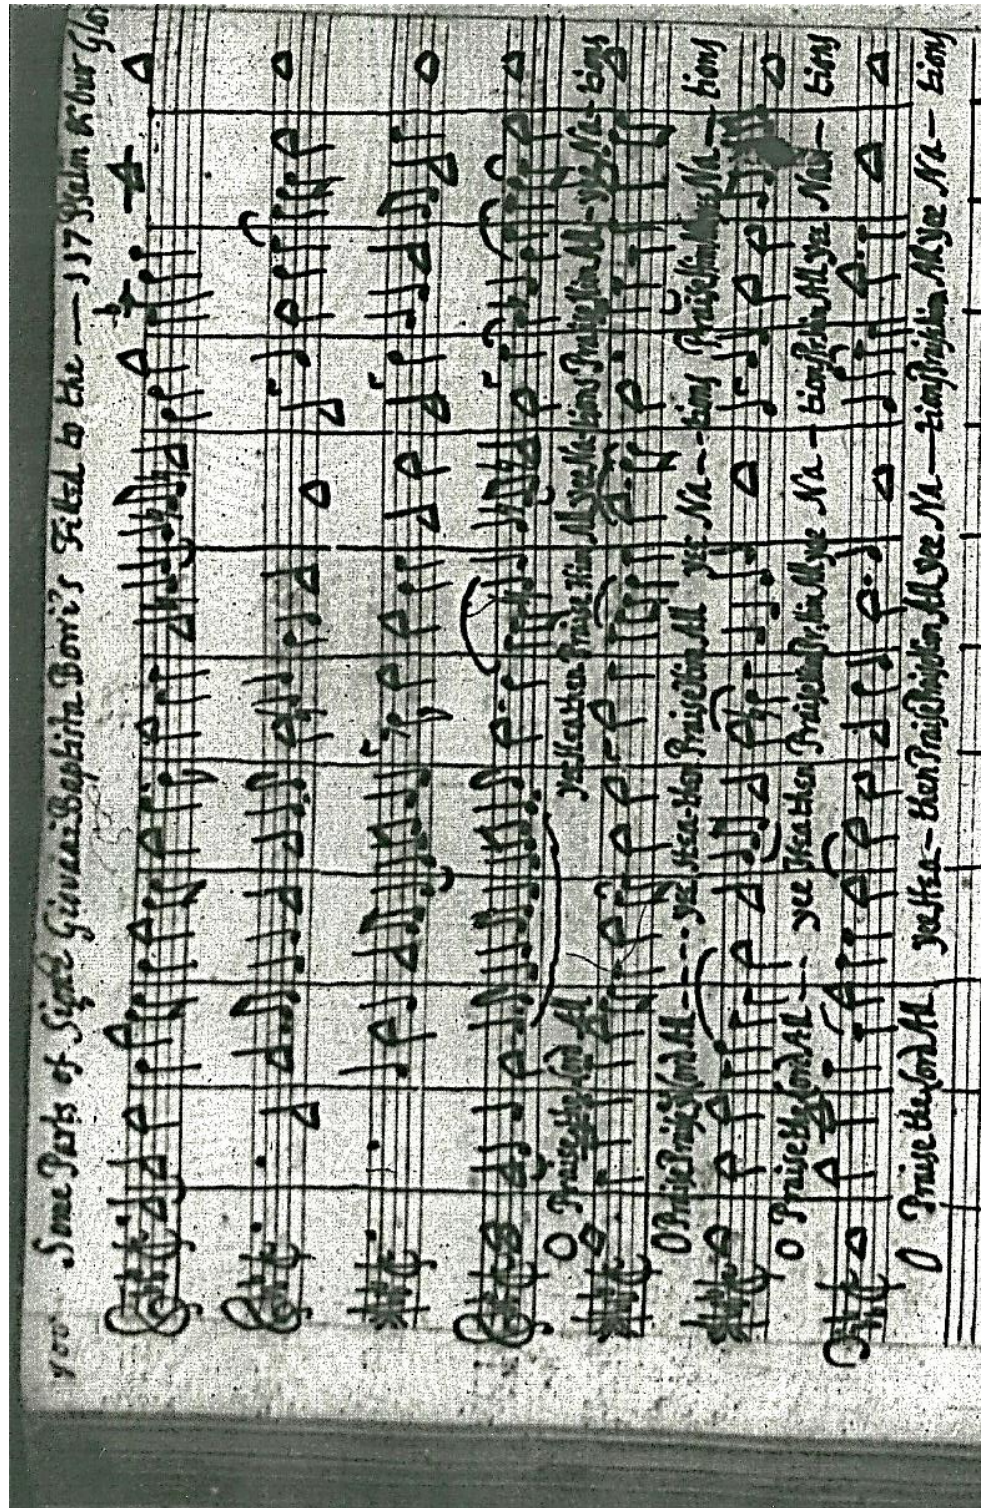 Some Parts of Signr Giovani Baptista Boni's Fitted to the — 117 Psalm &
O Praise the Lord All yee Heathen Praise Him All yee Na-tions Praise Him All-yee Na-tions
O Praise Praise ye Lord All --- yee Hea-then Praise Him All yee Na--tions Praise Him Na—tions
O Praise the Lord All --- yee Heathen Praise All yee Na—tion All yee Na—tions
O Praise the Lord All yee Hea-then Praise Praise him All yee Na—tion Praise him All yee Na—tions